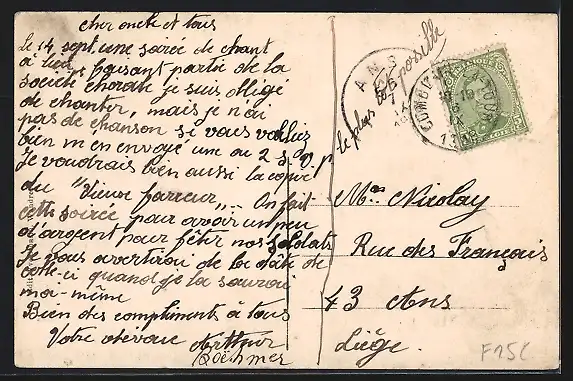 cher oncle et tous
le 14 sept. une soirée de chant
a lieu, faisant partie de la
société chorale je suis obligé
de chanter, mais je n'ai
pas de chanson si vous vouliez
bien m'en envoyé une ou 2 s. v. p.
Je voudrais bien aussi la copie
du "Vieux farceur". On fait
cette soirée pour avoir un peu
d'argent pour fêter nos soldats
Je vous avertirai de la date de
celle-ci quand je la saurai
moi-même
Bien des compliments à tous
Votre dévoué Arthur
Roehmer
le plus tôt possible
ANS
COMBLAIN-LA-TOUR
Mme Nicolay
Rue des Français
43 Ans
Liège.
F15C